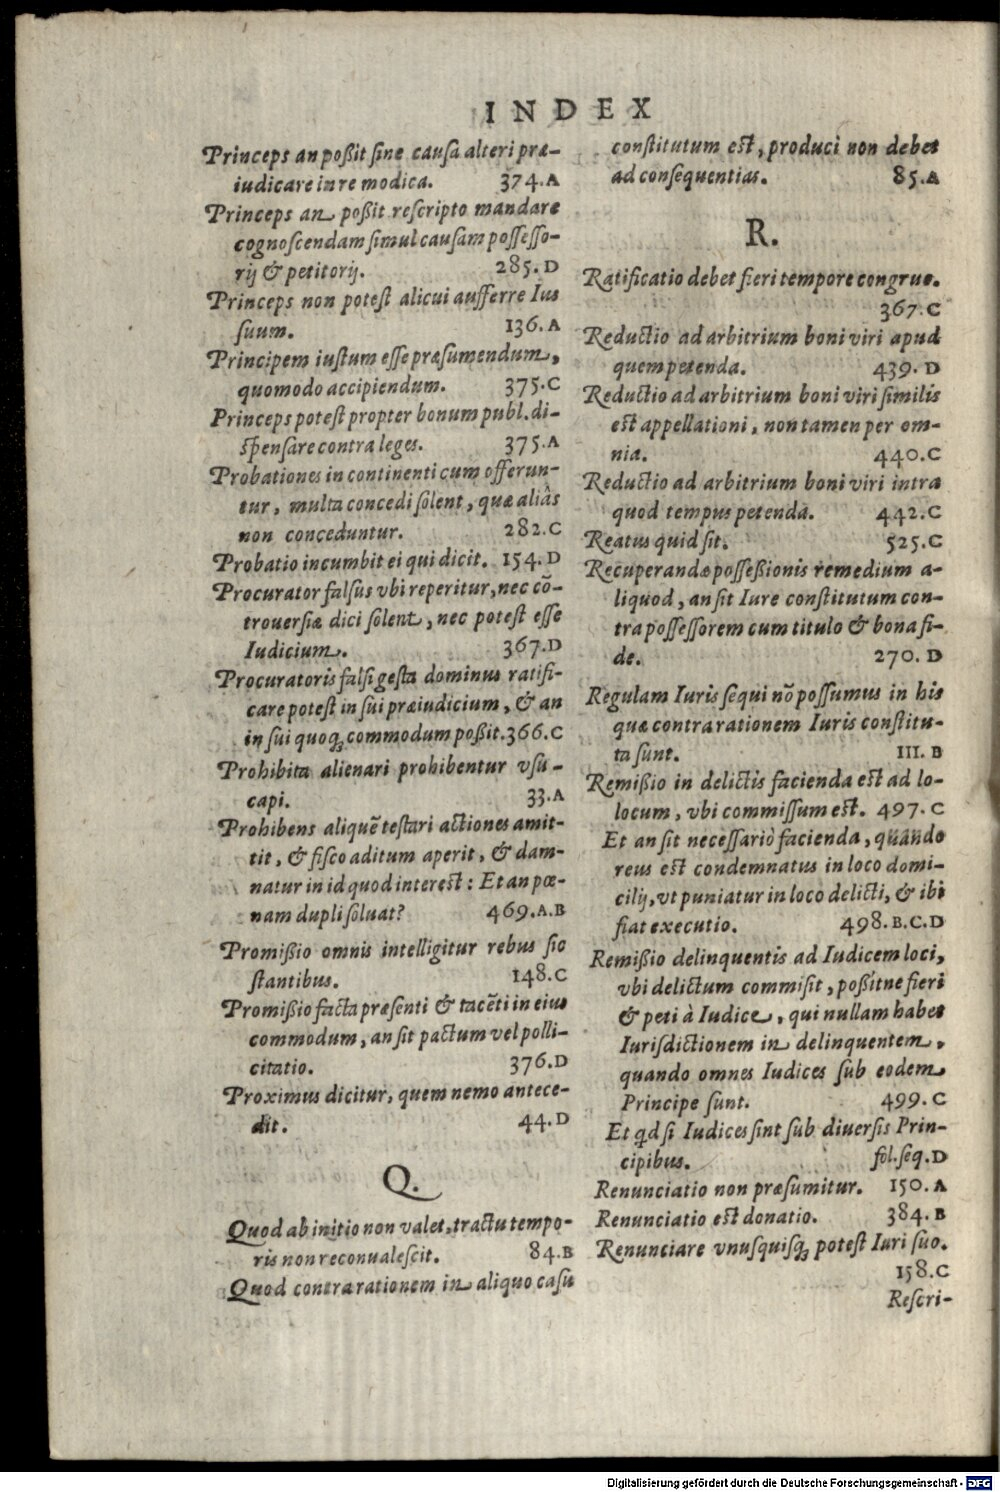 INDEX
Princeps an poßit ſine cauſa alteri præ-
iudicare in re modica. 374.A
Princeps an poßit reſcripto mandare
cognoſcendam ſimul cauſam poſſeſſo-
rij & petitorij. 285.D
Princeps non poteſt alicui aufferre Ius
ſuum. 136.A
Principem iuſtum eſſe præſumendum,
quomodo accipiendum. 375.C
Princeps poteſt propter bonum publ. di-
ſpenſare contra leges. 375.A
Probationes in continenti cum offerun-
tur, multa concedi ſolent, quæ aliàs
non conceduntur. 282.C
Probatio incumbit ei qui dicit. 154.D
Procurator falſus vbi reperitur, nec cõ-
trouerſiæ dici ſolent, nec poteſt eſſe
Iudicium. 367.D
Procuratoris falſi geſta dominus ratifi-
care poteſt in ſui præiudicium, & an
in ſui quoq; commodum poßit. 366.C
Prohibita alienari prohibentur vſu-
capi. 33.A
Prohibens aliquẽ teſtari actiones amit-
tit, & fiſco aditum aperit, & dam-
natur in id quod intereſt: Et an pœ-
nam dupli ſoluat? 469.A.B
Promißio omnis intelligitur rebus ſic
ſtantibus. 148.C
Promißio facta præſenti & tacẽti in eius
commodum, an ſit pactum vel polli-
citatio. 376.D
Proximus dicitur, quem nemo antece-
dit. 44.D
Q.
Quod ab initio non valet, tractu tempo-
ris non reconualeſcit. 84.B
Quod contra rationem in aliquo caſu
conſtitutum eſt, produci non debet
ad conſequentias. 85.A
R.
Ratificatio debet fieri tempore congruo.
367.C
Reductio ad arbitrium boni viri apud
quem petenda. 439.D
Reductio ad arbitrium boni viri ſimilis
eſt appellationi, non tamen per om-
nia. 440.C
Reductio ad arbitrium boni viri intra
quod tempus petenda. 442.C
Reatus quid ſit. 525.C
Recuperandæ poſſeßionis remedium a-
liquod, an ſit Iure conſtitutum con-
tra poſſeſſorem cum titulo & bona fi-
de. 270.D
Regulam Iuris ſequi nõ poſſumus in his
quæ contra rationem Iuris conſtitu-
ta ſunt. 111.B
Remißio in delictis facienda eſt ad lo-
locum, vbi commiſſum eſt. 497.C
Et an ſit neceſſariò facienda, quando
reus eſt condemnatus in loco domi-
cilij, vt puniatur in loco delicti, & ibi
fiat executio. 498.B.C.D
Remißio delinquentis ad Iudicem loci,
vbi delictum commiſit, poßítne fieri
& peti à Iudice, qui nullam habet
Iuriſdictionem in delinquentem,
quando omnes Iudices ſub eodem
Principe ſunt. 499.C
Et qd ſi Iudices ſint ſub diuerſis Prin-
cipibus. fol.ſeq.D
Renunciatio non præſumitur. 150.A
Renunciatio eſt donatio. 384.B
Renunciare vnuſquiſq; poteſt Iuri ſuo.
158.C
Reſcri-
Digitalisierung gefördert durch die Deutsche Forschungsgemeinschaft - DFG